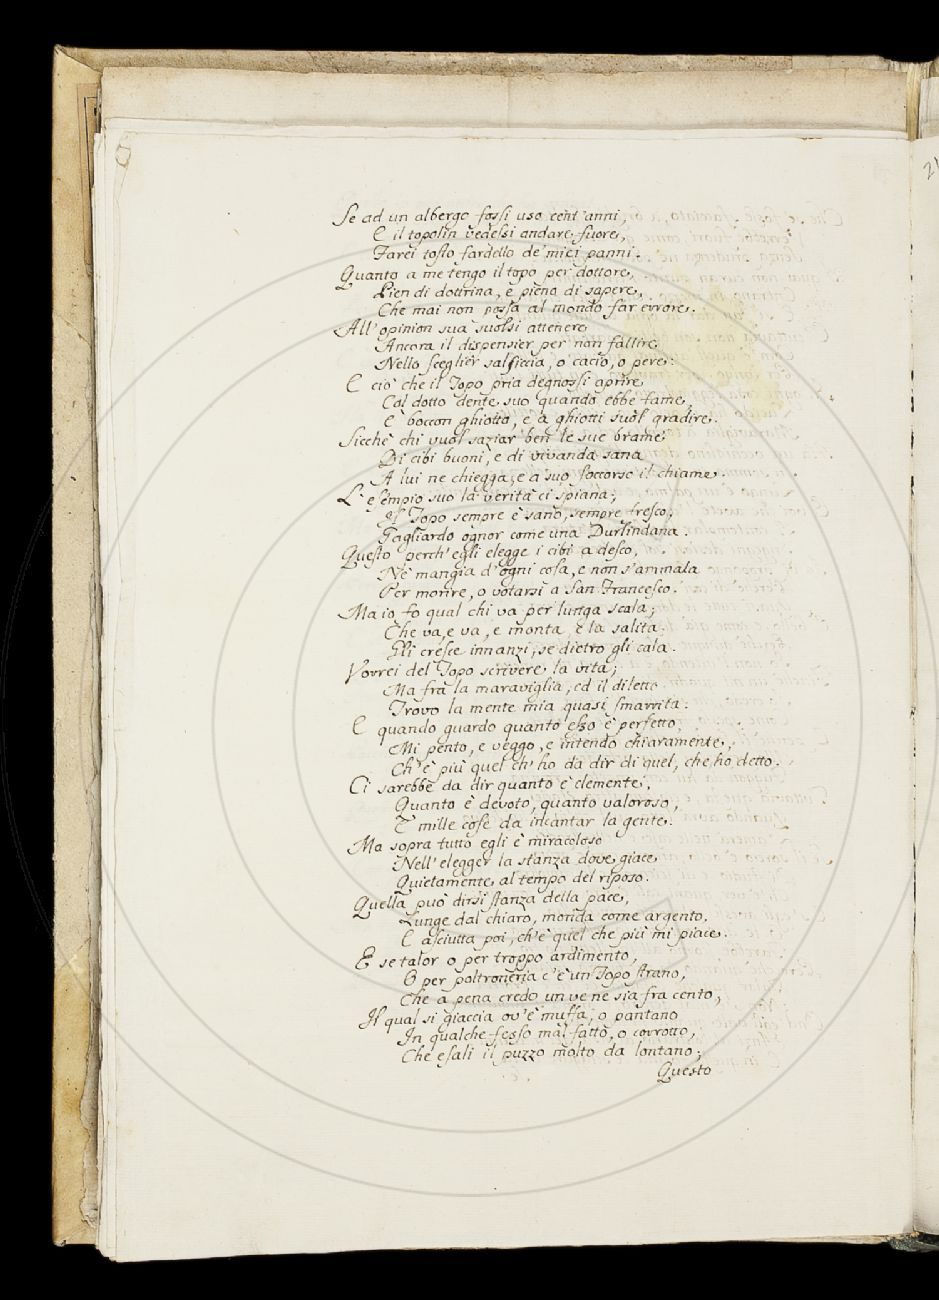 Se ad un albergo fossi uso cent'anni,
E il topolin vedessi andare fuore,
Farei tosto fardello de' miei panni.
Quanto a me tengo il topo per dottore,
Pien di dottrina, e pieno di sapere,
Che mai non possa al mondo far errore.
All'opinion sua suolsi attenere
Ancora il dispensier per non fallire
Nello sceglier salsiccia, o cacio, o pere:
E ciò che il Topo pria degnossi aprire
Col dotto dente suo quando ebbe fame,
E' boccon ghiotto, e a ghiotti suol gradire.
Sicchè chi vuol saziar ben le sue brame
Di cibi buoni, e di vivanda sana
A lui ne chiegga, e a suo soccorso il chiame.
L'esempio suo la verità ci spiana;
Il Topo sempre è sano, sempre fresco,
Gagliardo ognor come una Durlindana.
Questo perch'egli elegge i cibi a desco,
Nè mangia d'ogni cosa, e non s'ammala
Per morire, o votarsi a San Francesco.
Ma io fo qual chi va per lunga scala;
Che va, e va, e monta, e la salita
Gli cresce innanzi, se dietro gli cala.
Vorrei del Topo scrivere la vita;
Ma fra la maraviglia, ed il diletto
Trovo la mente mia quasi smarrita:
E quando guardo quanto esso è perfetto,
Mi pento, e veggo, e intendo chiaramente,
Ch'è più quel ch'ho da dir di quel, che ho detto.
Ci sarebbe da dir quanto è clemente,
Quanto è devoto, quanto valoroso,
E mille cose da incantar la gente.
Ma sopra tutto egli è miracoloso
Nell'elegger la stanza dove giace
Quietamente al tempo del riposo.
Quella può dirsi stanza della pace,
Lunge dal chiaro, monda come argento,
E asciutta poi, ch'è quel che più mi piace.
E se talor o per troppo ardimento,
O per poltroneria c'è un Topo strano,
Che a pena credo un ve ne sia fra cento,
Il qual si giaccia ov'è muffa, o pantano
In qualche fesso mal fatto, o corrotto,
Che esali il puzzo molto da lontano;
Questo